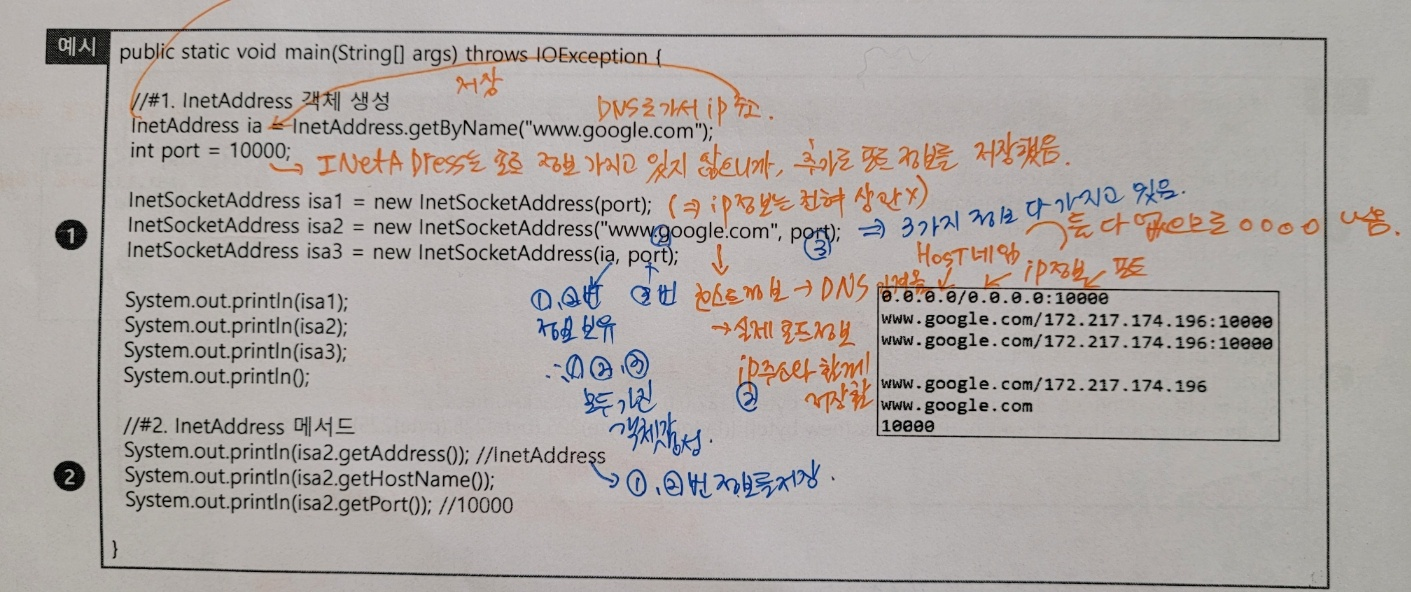 예시
public static void main(String[] args) throws IOException {
저장
//#1. InetAddress 객체 생성
DNS로가서 ip 주소.
InetAddress ia = InetAddress.getByName("www.google.com");
int port = 10000;
↳ INetADress는 포트 정보 가지고 있지 않으니까, 추가로 포트 정보를 저장했음.
1
InetSocketAddress isa1 = new InetSocketAddress(port); (⇒ ip정보는 전혀 상관X)
InetSocketAddress isa2 = new InetSocketAddress("www.google.com", port); ⇒ 3가지 정보 다 가지고 있음.
② ③
InetSocketAddress isa3 = new InetSocketAddress(ia, port);
둘 다 없으므로 0000 나옴.
HOST네임 ip정보 포트
①,②번 정보보유
③번
∴①②,③ 모두 가진 객체 생성.
호스트 정보 → DNS
→ 실제 로드정보 ip주소와 함께 저장함
②
System.out.println(isa1);
System.out.println(isa2);
System.out.println(isa3);
System.out.println();
0.0.0.0/0.0.0.0:10000
www.google.com/172.217.174.196:10000
www.google.com/172.217.174.196:10000
www.google.com/172.217.174.196
www.google.com
10000
2
//#2. InetAddress 메서드
System.out.println(isa2.getAddress()); //InetAddress
↳ ①,②번 정보를 저장.
System.out.println(isa2.getHostName());
System.out.println(isa2.getPort()); //10000
}